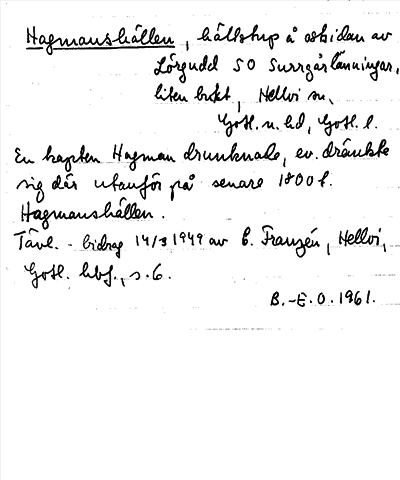 Hagmanshällen, hällstup å östsidan av
Lörgudd SO Surrgårlänningar,
liten bukt, Hellvi sn,
Gotl. n. hd, Gotl. l.
En kapten Hagman drunknade, ev. dränkte
sig där utanför på senare 1800 t.
Hagmanshällen.
Tävl. - bidrag 14/3 1949 av E. Franzén, Hellvi,
Gotl. hbf., s. 6.
B.-E.O. 1961.